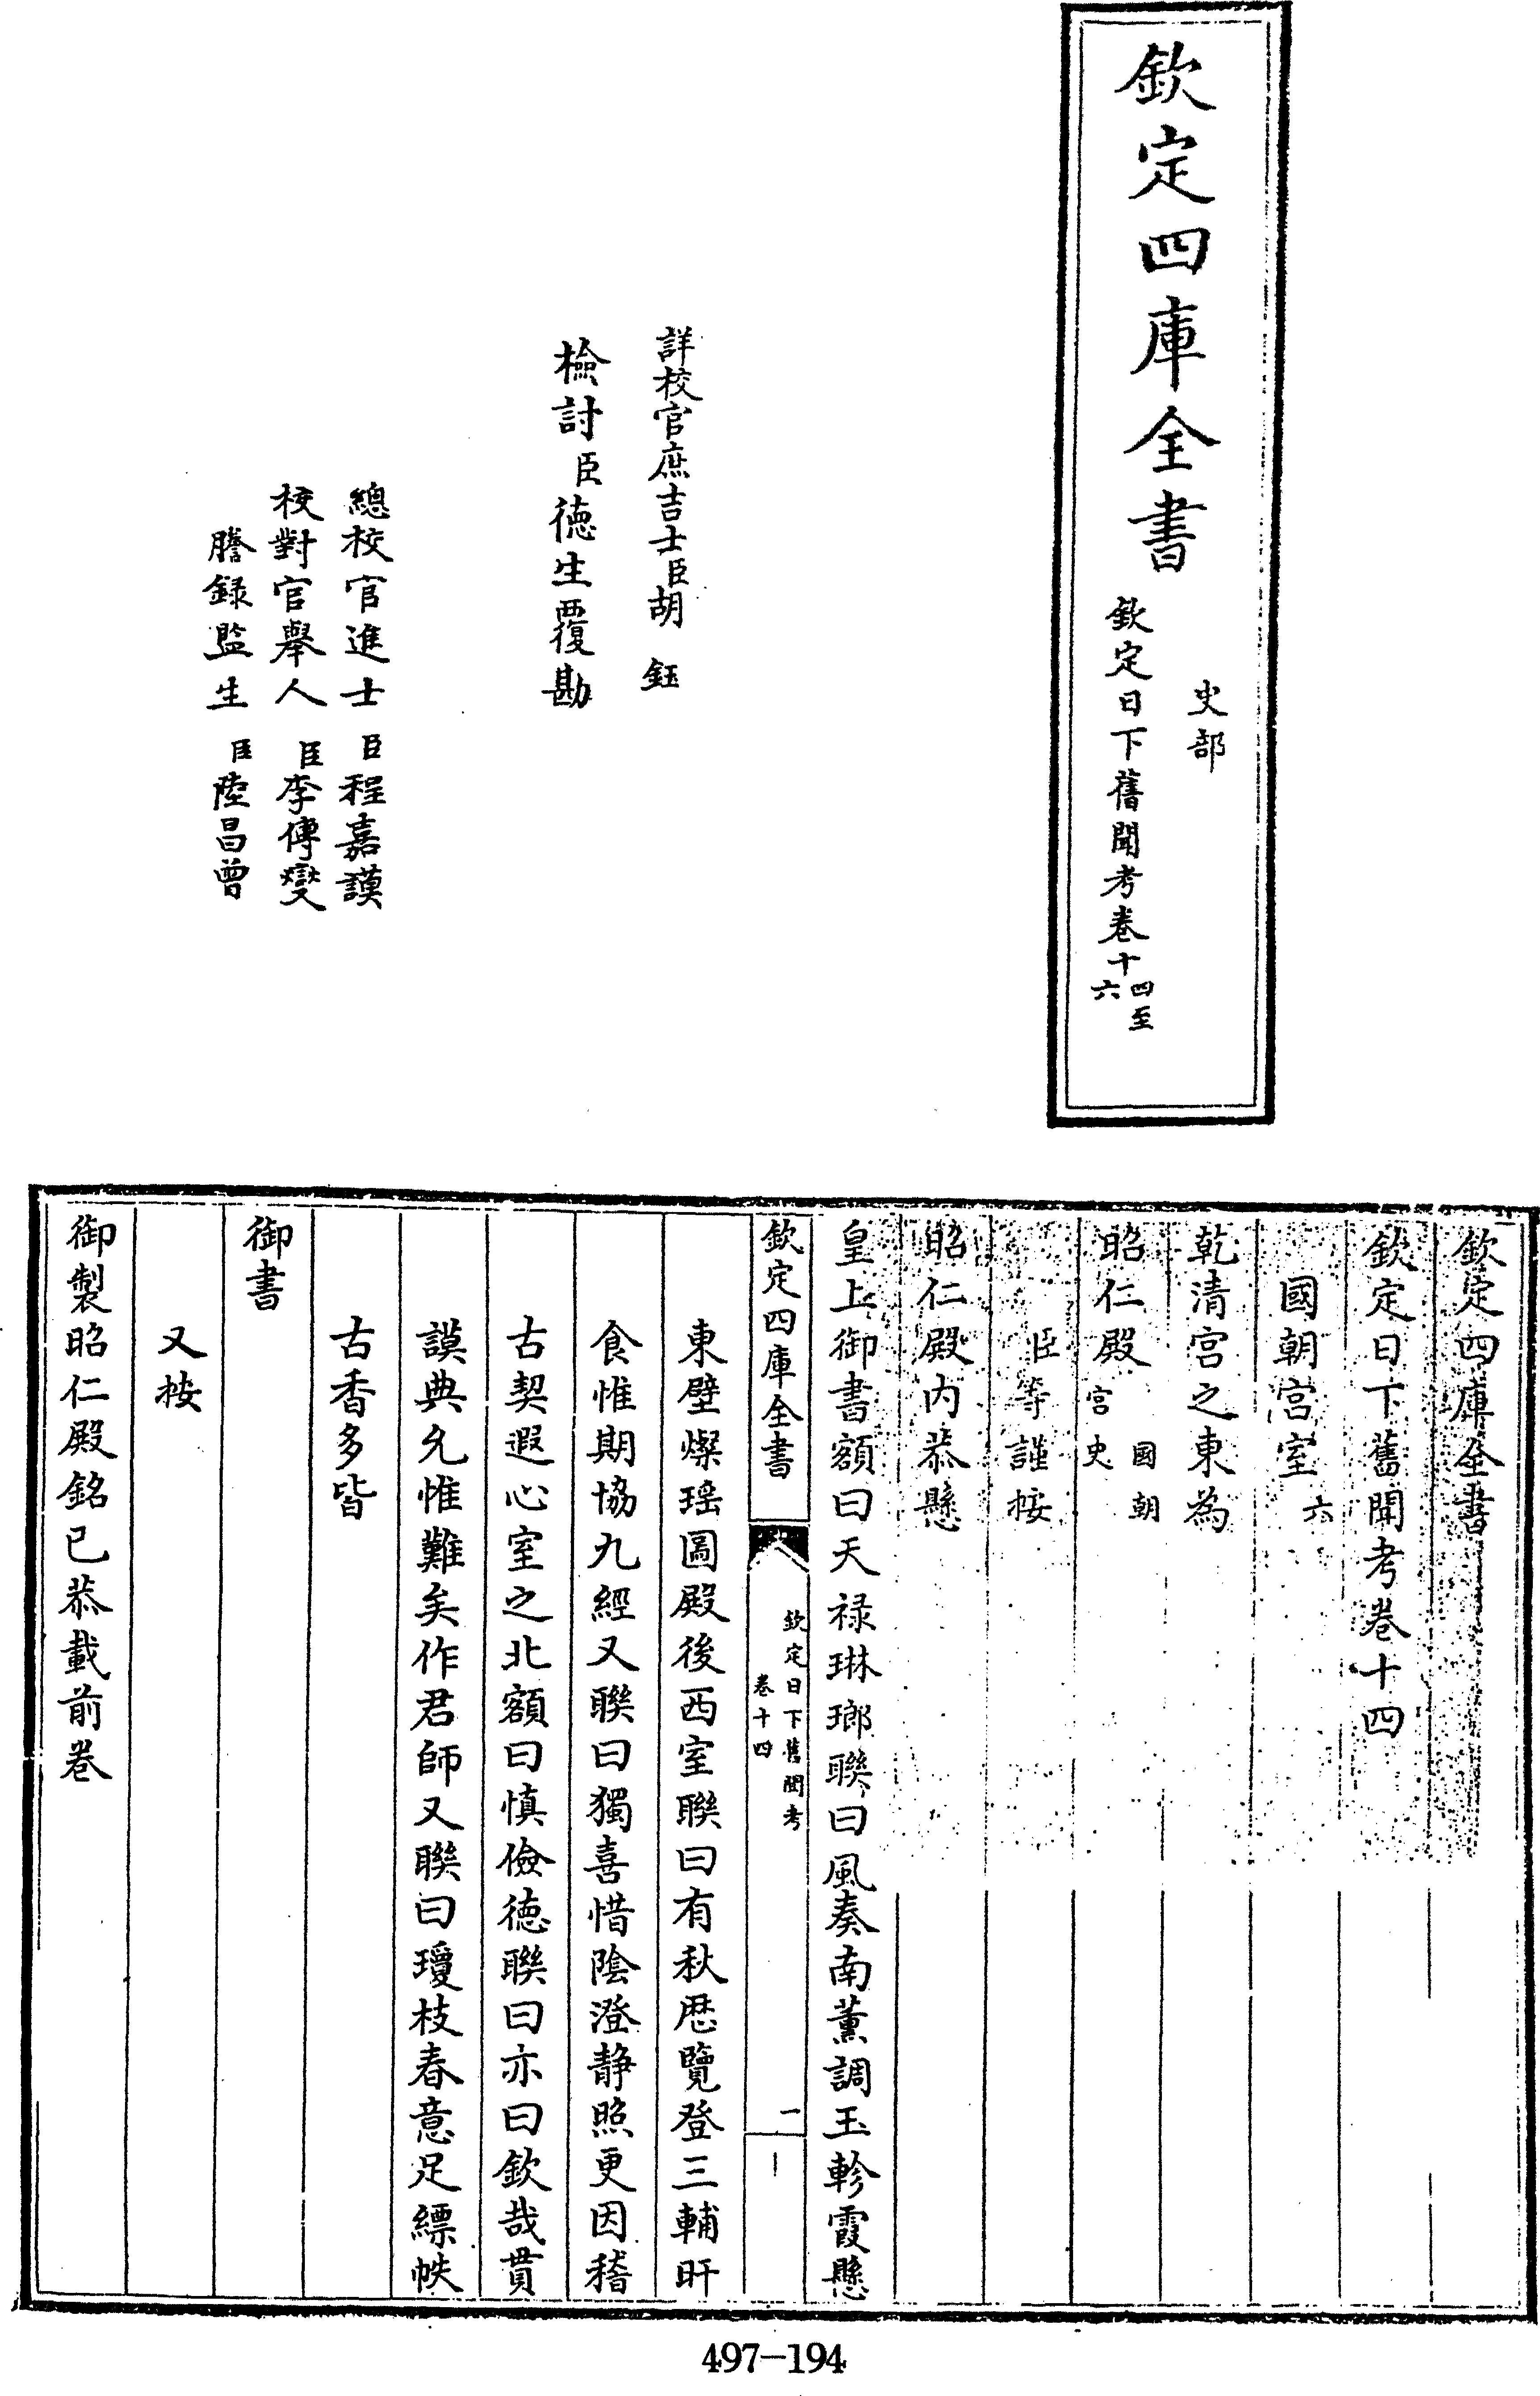 欽定四庫全書
史部
欽定日下舊聞考卷十四至六
詳校官庶吉士臣胡鈺
檢討臣德生覆勘
總校官進士臣程嘉謨
校對官舉人臣李傳燮
謄錄監生臣陸昌曾
欽定四庫全書
欽定日下舊聞考卷十四
國朝宮室六
乾清宮之東為
昭仁殿國朝宮史
臣等謹按
昭仁殿内恭懸
皇上御書額曰天禄琳瑯聯曰風奏南薰調玉軫霞懸
欽定四庫全書
欽定日下舊聞考
卷十四
一
東壁燦瑶圖殿後西室聯曰有秋歴覽登三輔旰
食惟期協九經又聯曰獨喜惜陰澄静照更因稽
古契遐心室之北額曰慎儉德聯曰亦曰欽哉貫
謨典允惟難矣作君師又聯曰瓊枝春意足縹帙
古香多皆
御書
又按
御製昭仁殿銘已恭載前卷
497-194